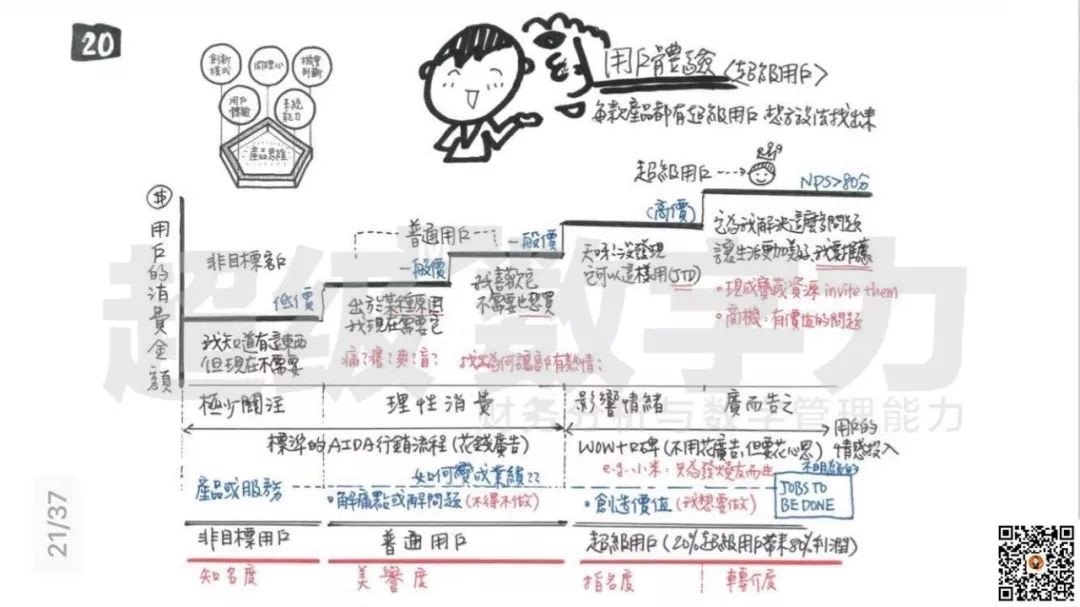 20
創新
模式
同理心
機會
判斷
用戶
體驗
系統
能力
產品思維
用戶體驗〈超級用戶〉
每款產品都有超級用戶 想方設法找出來
超級用戶
NPS>80分
$
用戶的消費金額
非目標客戶
低價
普通用戶
一般價
一般價
(高價)
我知道有這東西
但現在不需要
出於某種原因
我現在需要它
我喜歡它
不需要也想買
天呀！沒發現
它可以這樣用(JTD)
它為我解決這麼多問題
讓生活更加美好,我要推薦
•現成寶藏資源 invite them
•商機:有價值的問題
痛?癢?爽?盲?
找出為何讓客戶有熱情?
極少關注
理性消費
影響情緒
廣而告之
標準的AIDA行銷流程(花錢廣告)
WOW+口碑(不用花廣告,但要花心思)
用戶的
情感投入
如何變成業績??
e.g. 小米:只為發燒友而生
產品或服務
•解痛點或解問題(不得不做)
•創造價值(我想要做)
JOBS TO
BE DONE
非目標用戶
普通用戶
超級用戶(20%超級用戶帶來80%利潤)
知名度
美譽度
指名度
轉介度
超级数字力
财务分析与数字管理能力
21/37